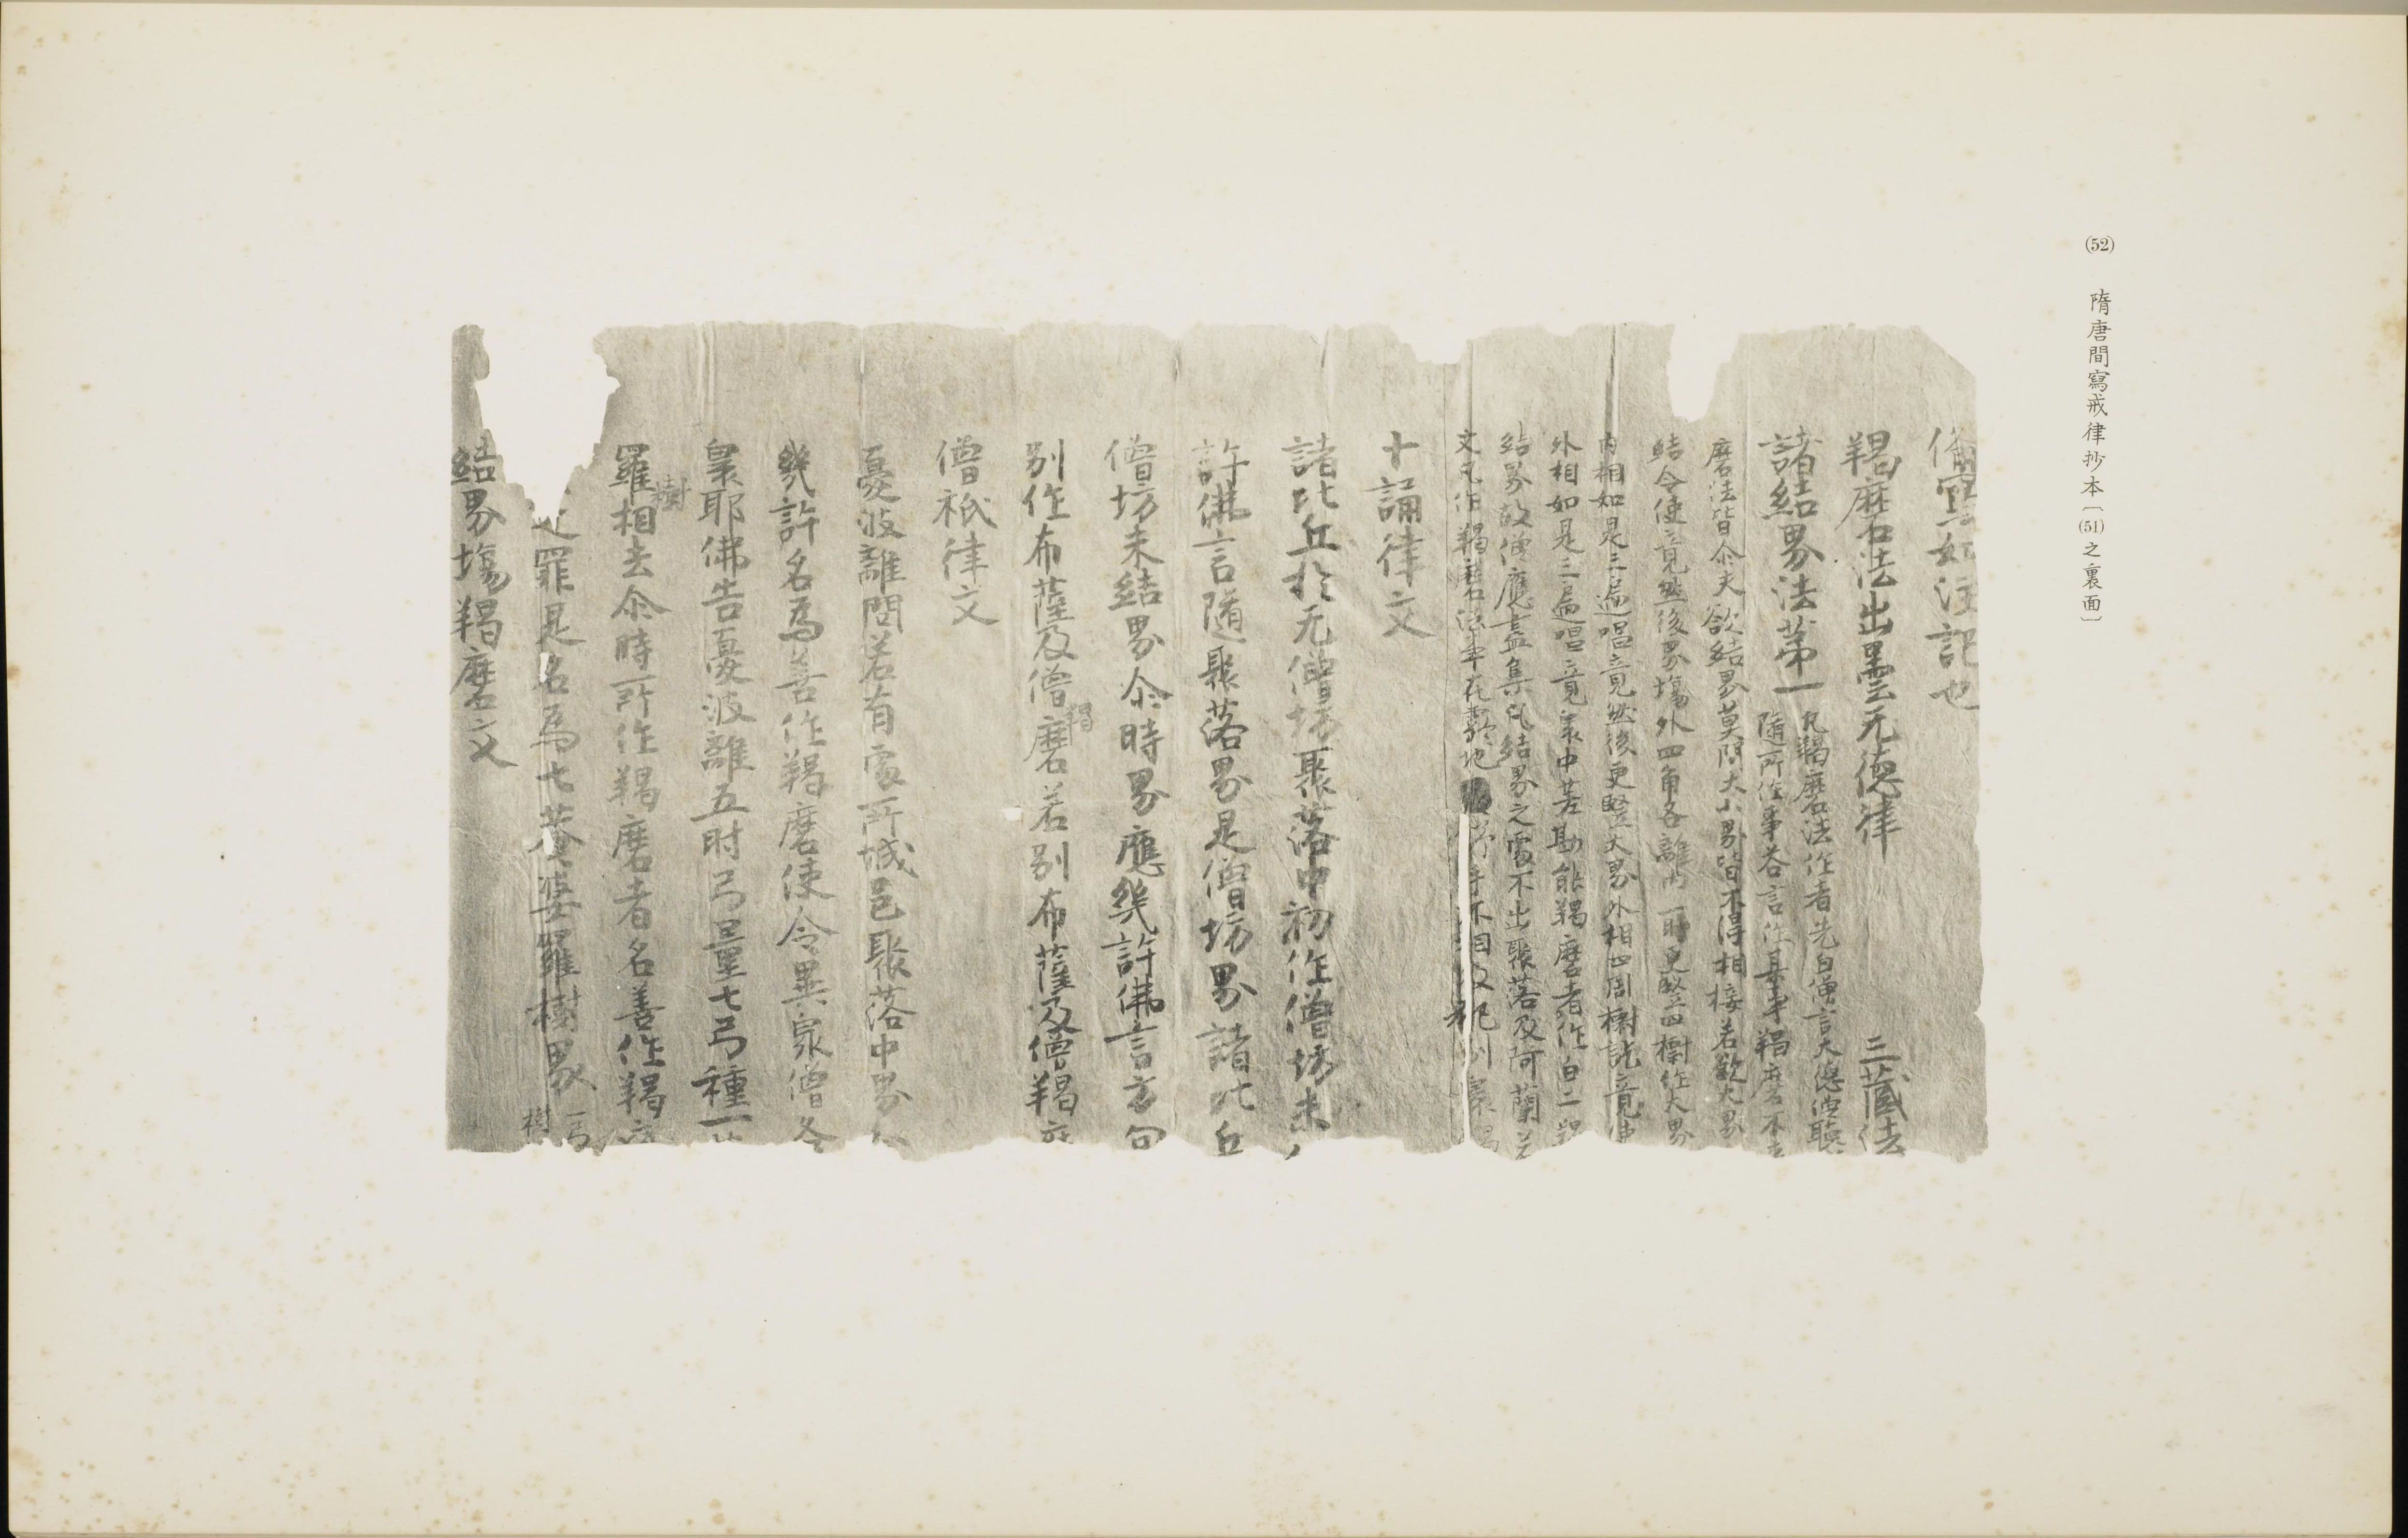 (52) 隋唐間寫戒律抄本〔(51)之裏面〕
注記也
羯磨法出曇无德律 三藏法
諸結界法第一
凡羯磨法作者先白僧言大德僧聽
隨所作事答言作某事羯磨不
磨法皆尒夫欲結界莫問大小界皆不得相接若欲大界
結令使竟然後界塲外四角各離內一肘更竪四樹作大界
內相如是三遍唱竟然後更竪大界外相四周樹訖竟
外相如是三遍唱竟衆中差勘能羯磨者作白二羯
結界故僧應盡集凡結界之處不出聚落及阿蘭
文凡作羯磨法事在露地 手不相及
十誦律文
諸比丘於无僧坊聚落中初作僧坊未
許佛言隨聚落界是僧坊界諸比丘
僧坊未結界尒時界應幾許佛言方
別作布薩及僧羯磨若別布薩及僧羯
僧祇律文
憂波離問若有處所城邑聚落中界
幾許名爲善作羯磨使令異衆僧各
衆耶佛告憂波離五肘弓量七弓種一
羅樹相去尒時所作羯磨者名善作羯
罪是名爲七菴婆羅樹界 一弓 樹
結界塲羯磨文